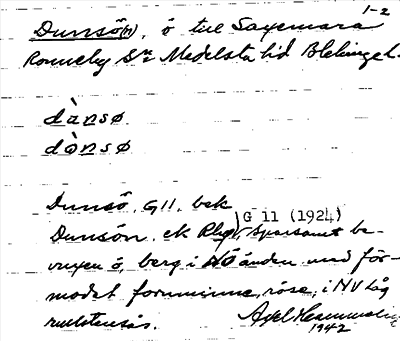 1-2
Dunsö(n), ö till Saxemara
Ronneby Sn Medelsta hd Blekinge l.
dànsø
dònsø
Dunsö, G11. bek
G 11 (1924)
Dunsön. ek Sparsamt be-
vuxen ö, berg i NÖ änden med för-
modat fornminne, röse, i NV låg
rullstensås.
Axel
1942